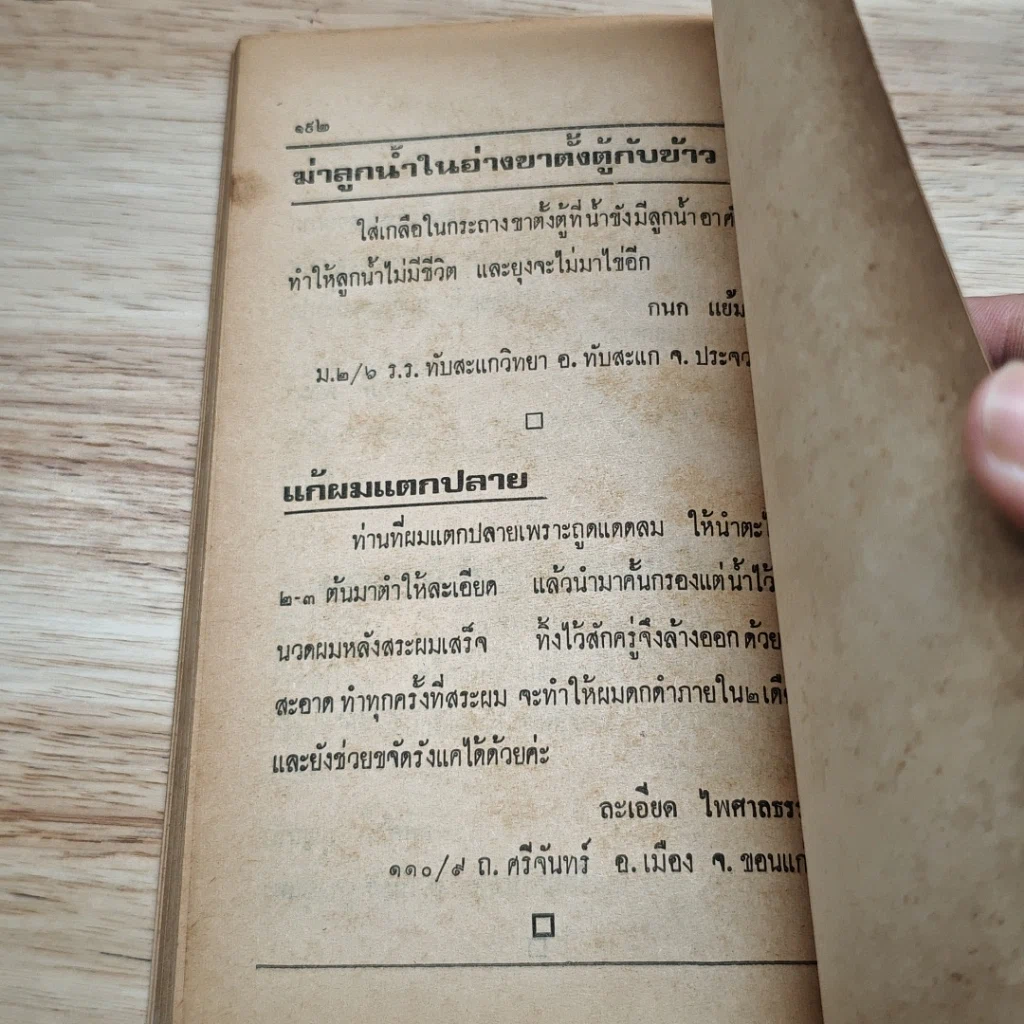 ๑๕๒
ฆ่าลูกน้ำในอ่างขาตั้งตู้กับข้าว
ใส่เกลือในกระถางขาตั้งตู้ที่น้ำขังมีลูกน้ำอาศั
ทำให้ลูกน้ำไม่มีชีวิต และยุงจะไม่มาไข่อีก
กนก แย้ม
ม.๒/๖ ร.ร. ทับสะแกวิทยา อ. ทับสะแก จ. ประจว
แก้ผมแตกปลาย
ท่านที่ผมแตกปลายเพราะถูดแดดลม ให้นำตะไ
๒-๓ ต้นมาตำให้ละเอียด แล้วนำมาคั้นกรองแต่น้ำไว้
นวดผมหลังสระผมเสร็จ ทิ้งไว้สักครู่จึงล้างออกด้วย
สะอาด ทำทุกครั้งที่สระผม จะทำให้ผมดกดำภายใน๒เดือ
และยังช่วยขจัดรังแคได้ด้วยค่ะ
ละเอียด ไพศาลธรร
๑๑๐/๙ ถ. ศรีจันทร์ อ. เมือง จ. ขอนแก